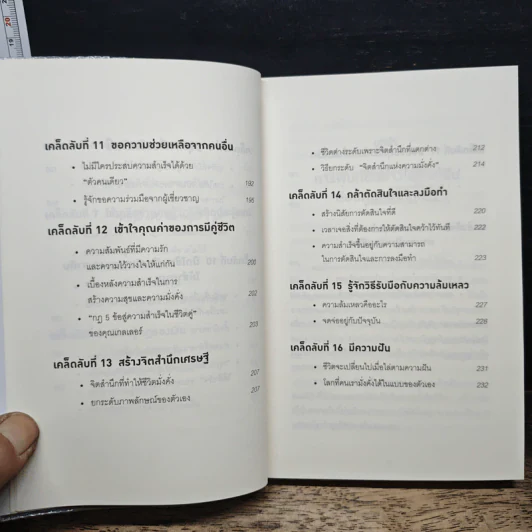 เคล็ดลับที่ 11 ขอความช่วยเหลือจากคนอื่น
• ไม่มีใครประสบความสำเร็จได้ด้วย
"ตัวคนเดียว" 192
• รู้จักขอความร่วมมือจากผู้เชี่ยวชาญ 195
เคล็ดลับที่ 12 เข้าใจคุณค่าของการมีคู่ชีวิต
• ความสัมพันธ์ที่มีความรัก
และความไว้วางใจให้แก่กัน 200
• เบื้องหลังความสำเร็จในการ
สร้างความสุขและความมั่งคั่ง 202
• "กฎ 5 ข้อสู่ความสำเร็จในชีวิตคู่"
ของคุณเกลเลอร์ 203
เคล็ดลับที่ 13 สร้างจิตสำนึกเศรษฐี
• จิตสำนึกที่ทำให้ชีวิตมั่งคั่ง 207
• ยกระดับภาพลักษณ์ของตัวเอง 207
• ชีวิตต่างระดับเพราะจิตสำนึกที่แตกต่าง 212
• วิธียกระดับ "จิตสำนึกแห่งความมั่งคั่ง" 214
เคล็ดลับที่ 14 กล้าตัดสินใจและลงมือทำ
• สร้างนิสัยการตัดสินใจที่ดี 220
• เวลาเจอสิ่งที่ต้องการให้ตัดสินใจคว้าไว้ทันที 222
• ความสำเร็จขึ้นอยู่กับความสามารถ
ในการตัดสินใจและการลงมือทำ 223
เคล็ดลับที่ 15 รู้จักวิธีรับมือกับความล้มเหลว
• ความล้มเหลวคืออะไร 227
• จดจ่ออยู่กับปัจจุบัน 228
เคล็ดลับที่ 16 มีความฝัน
• ชีวิตจะเปลี่ยนไปเมื่อไล่ตามความฝัน 231
• โลกที่คนเรามั่งคั่งได้ในแบบของตัวเอง 232